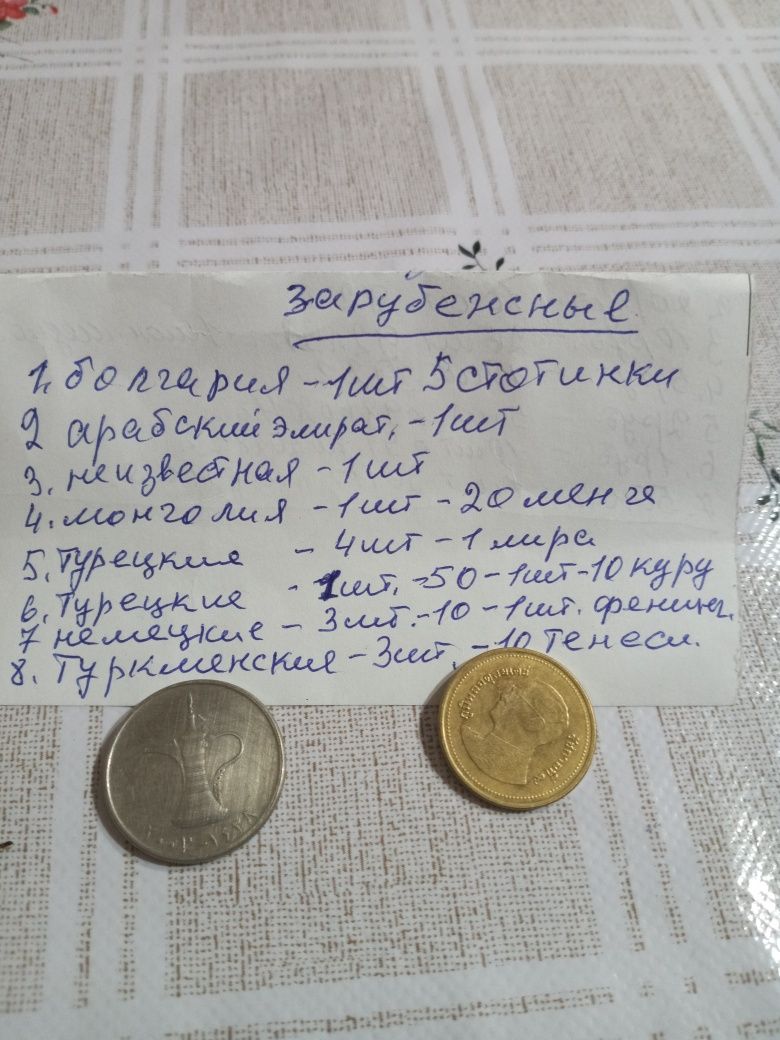 зарубежные
1. болгария - 1шт 5 стотинки
2 арабский эмират, - 1шт
3. неизвестная - 1шт
4. монголия - 1шт - 20 менге
5. Турецкие - 4шт - 1 лира
6. Турецкие - 1шт. - 50 - 1шт - 10 куру
7 немецкие - 3шт. - 10 - 1шт. фенинг.
8. Туркменские - 3шт. - 10 Тенеси.